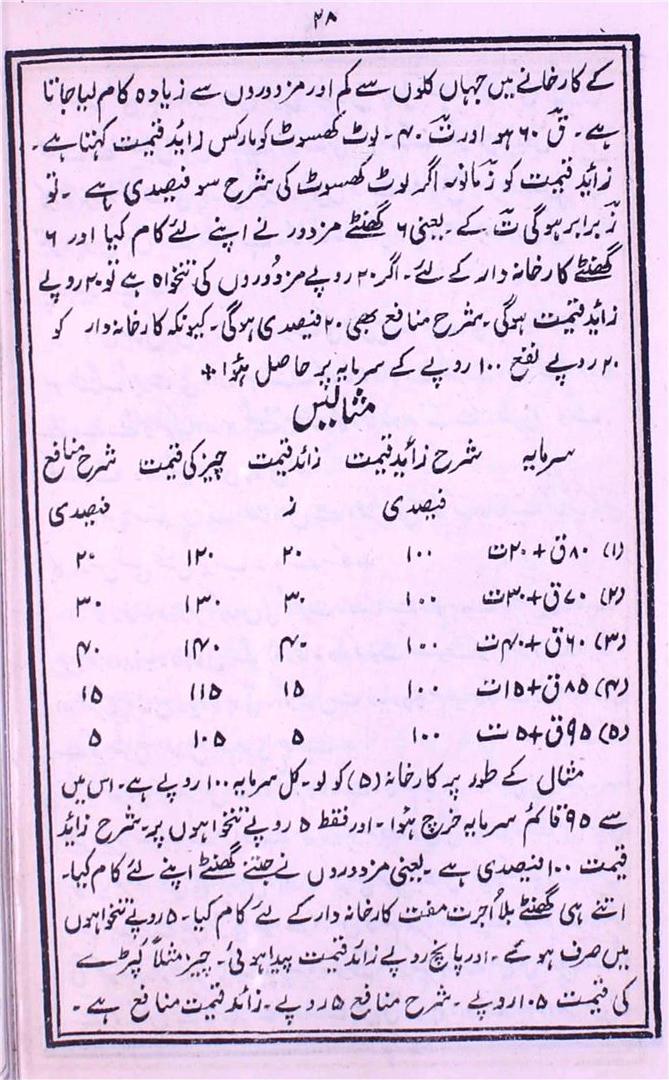 ۲۸
کے کارخانے میں جہاں کلوں سے کم اور مزدوروں سے زیادہ کام لیا جاتا
ہے۔ ق ۶۰ ہو اور ت ۴۰۔ لوٹ کھسوٹ کو مارکس زائد قیمت کہتا ہے۔
زائد قیمت کو ز مانو۔ اگر لوٹ کھسوٹ کی شرح سو فیصدی ہے۔ تو
ز برابر ہوگی ت کے۔ یعنی ۶ گھنٹے مزدور نے اپنے لئے کام کیا اور ۶
گھنٹے کارخانہ دار کے لئے۔ اگر ۲۰ روپے مزدوروں کی تنخواہ ہے تو ۲۰ روپے
زائد قیمت ہوگی۔ شرح منافع بھی ۲۰ فیصدی ہوگی۔ کیونکہ کارخانہ دار کو
۲۰ روپے نفع ۱۰۰ روپے کے سرمایہ پر حاصل ہؤا +
مثالیں
سرمایہ شرح زائد قیمت زائد قیمت چیز کی قیمت شرح منافع
فیصدی ز فیصدی
(۱) ۸۰ ق + ۲۰ ت ۱۰۰ ۲۰ ۱۲۰ ۲۰
(۲) ۷۰ ق + ۳۰ ت ۱۰۰ ۳۰ ۱۳۰ ۳۰
(۳) ۶۰ ق + ۴۰ ت ۱۰۰ ۴۰ ۱۴۰ ۴۰
(۴) ۸۵ ق + ۱۵ ت ۱۰۰ ۱۵ ۱۱۵ ۱۵
(۵) ۹۵ ق + ۵ ت ۱۰۰ ۵ ۱۰۵ ۵
مثال کے طور پر کارخانہ (۵) کو لو۔ کل سرمایہ ۱۰۰ روپے ہے۔ اس میں
سے ۹۵ قائم سرمایہ خرچ ہؤا۔ اور فقط ۵ روپے تنخواہوں پر۔ شرح زائد
قیمت ۱۰۰ فیصدی ہے۔ یعنی مزدوروں نے جتنے گھنٹے اپنے لئے کام کیا۔
اتنے ہی گھنٹے بلا اُجرت مفت کارخانہ دار کے لئے کام کیا۔ ۵ روپے تنخواہوں
میں صرف ہوئے۔ اور پانچ روپے زائد قیمت پیدا ہوئی۔ چیز مثلاً کپڑے
کی قیمت ۱۰۵ روپے۔ شرح منافع ۵ روپے۔ زائد قیمت منافع ہے۔